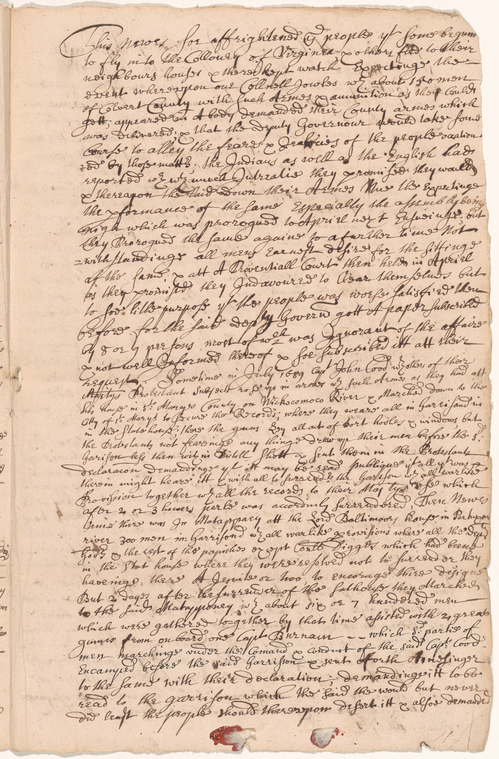 This Newes soe affrightened ye people yt some begun
to fly into the Collouey of Virginea & others fled to their
neighbours houses & there kept watch Expectinge the
event whereupon one Collnell Jowles wth about 150 men
of Calvert County with such Armes & ammunition as they could
gett, appeared in A body demanded their County armes which
was delivered & that the deputy Governour would take some
course to alley the feares & Jealosies of the people
by those the Indians as well as the English had
reported wth much Intreatie they promised they would
& thereupon the laid down their Armes the Expectinge
the pformance of the same Especially the assembly being
nigh which was prorogued to Aprill next Ensueinge but
they Prorogued the same againe to a further time Not
=with standinge all mens Earnest desire for the sittinge
of the same & att A Provenciall Court then held in Aprill
as they promised they Indeavoured to Clear themselves but
to soe little purpose yt the people was worse satisfied then
before for the said deputy Govern gott A paper subscribed
by 8 or 9 persons most of wch was Ignorant of the affaire
& not well Informed thereof & soe subscribed itt att their
request Sometime in July 1689 Capt John Cood & others of their
Matys Protestant Subjects rose up in armes wth such Arms as they had att
his house in St Maryes County on Wickocomoco River & Marched down to the
City of St Marys to secure the Records, where they weare all in Garrison in
in the Statehouse there the guns lay all out of Port holes & windows but
the Protestants not fearinge any thinge drew up their men before the sd
Garison less then within Pistill Shott & sent them in the Protestants
declaracon demandinge yt itt may be read publique yt all yt was
therein might heare itt & withall to surrender the Garison & all warlike
Provision together wth all the records to their Majties use which
after 2 or 3 howers parle was accordinly surrendered Then Newes
came there was In Matapany att the Lord Baltimors house in Patuxent
river 300 men in Garrisond wth all warlike provisions where all the
& the rest of the papishes except which had been
in the Stat house where they were resolved not to surender they
haveinge there A Jesuite or too to encorage there designe
But 2 dayes after the surrender of the Statehouse they Marched
to the said Matapaney wth about six or 7 hundered men
which were gathered together by that time assisted with 2 greate
gunns from on bord one Capt Burnam -- which sd parties of
men marchinge under the Comand & conduct of the said Capt Cood
Encamped before the said Garrison & sent forth A
to the same with their declaration, demandinge itt to be
read to the garrison which the said the would but never
did least the people should thereupon desert itt & alsoe demanded